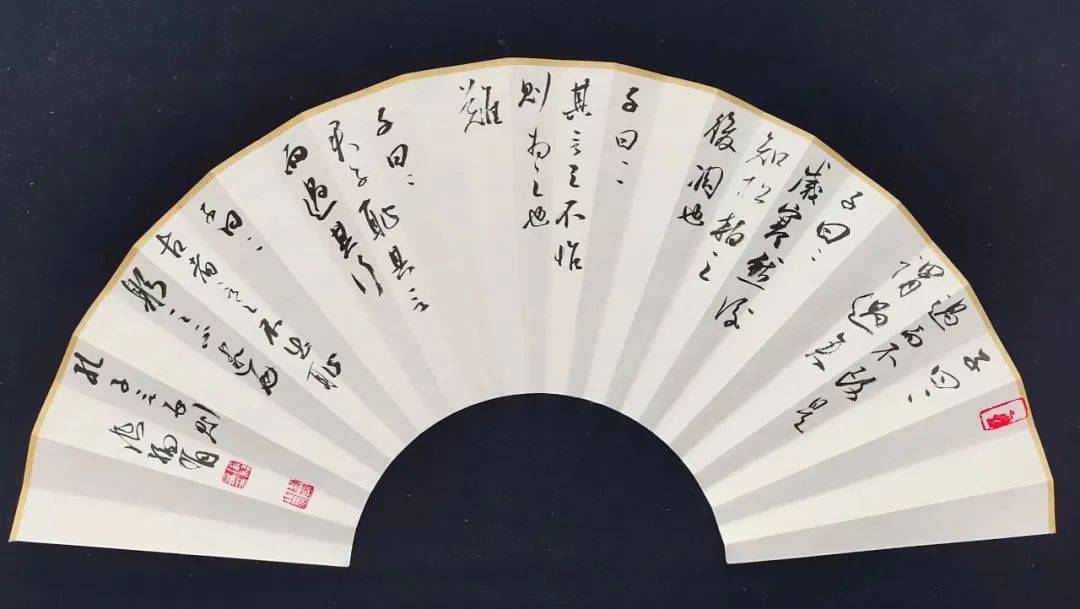 子曰：
過而不改是
謂過矣
子曰：
歲寒然後
知松柏之
後凋也
子曰：
其言之不怍
則為之也
難
子曰：
君子恥其言
而過其行
子曰：
古者言之不出恥
躬之不逮也
孔子言五則